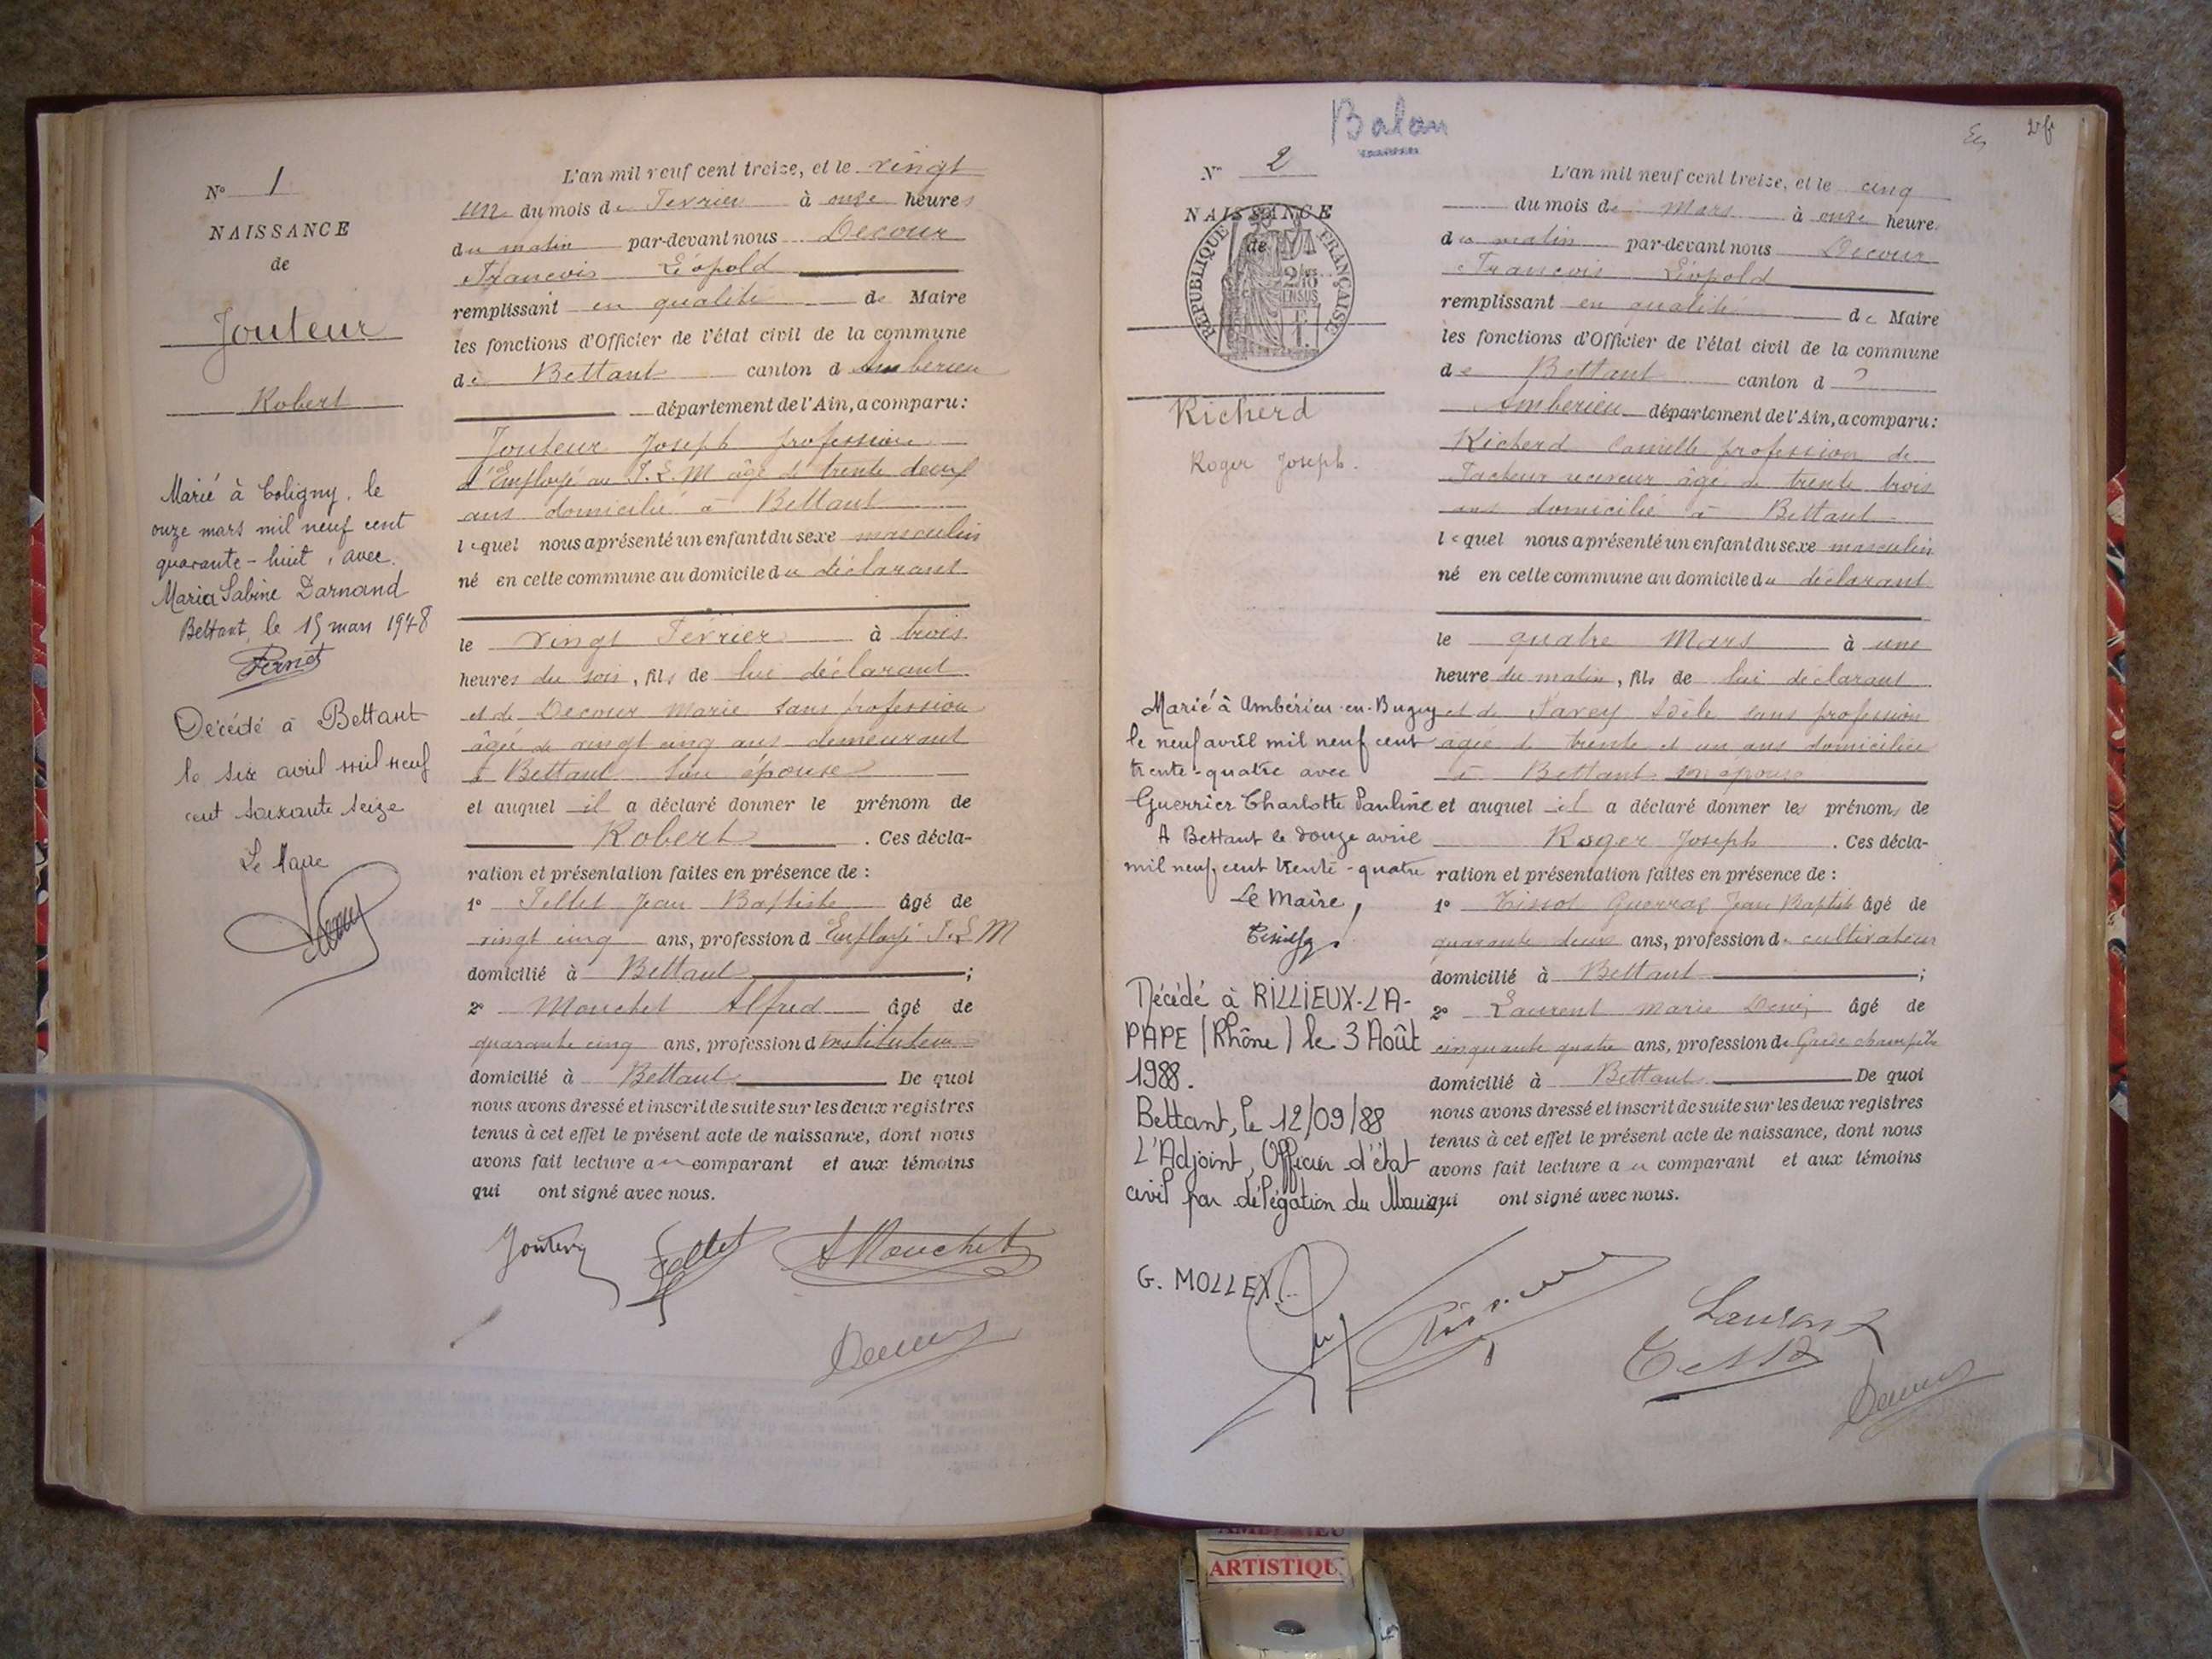 N° 1
NAISSANCE
de
Jouteur
Robert
Marié à Coligny, le
onze mars mil neuf cent
quarante-huit, avec
Maria Sabine Darnand
Bettant, le 15 mars 1948
Pernet
Décédé à Bettant
le six avril mil neuf
cent soixante seize
Le Maire
L'an mil neuf cent treize, et le vingt
un du mois de Fevrier à onze heures
du matin par-devant nous Decour
Francois Léopold
remplissant en qualité de Maire
les fonctions d'Officier de l'état civil de la commune
de Bettant canton d Amberieu
département de l'Ain, a comparu:
Jouteur Joseph profession
d'Employé au P.L.M âgé de trente deux
ans domicilié à Bettant
lequel nous a présenté un enfant du sexe masculin
né en cette commune au domicile du déclarant
le vingt Février à trois
heures du soir, fils de lui déclarant
et de Decour Marie sans profession
âgée de vingt cinq ans demeurant
à Bettant son épouse
et auquel il a déclaré donner le prénom de
Robert. Ces décla-
ration et présentation faites en présence de :
1° Tellet Jean Baptiste âgé de
vingt cinq ans, profession d Employé P.L.M
domicilié à Bettant ;
2° Mouchet Alfred âgé de
quarante cinq ans, profession d'instituteur
domicilié à Bettant De quoi
nous avons dressé et inscrit de suite sur les deux registres
tenus à cet effet le présent acte de naissance, dont nous
avons fait lecture au comparant et aux témoins
qui ont signé avec nous.
Jouteur Tellet A Mouchet
Decour
Balan
2 f
N° 2
NAISSANCE
de
RÉPUBLIQUE FRANÇAISE
2/10
EN SUS
Richerd
Roger Joseph.
Marié à Ambérieu-en-Bugey
le neuf avril mil neuf cent
trente-quatre avec
Guerrier Charlotte Pauline
A Bettant le douze avril
mil neuf cent trente-quatre
Le Maire,
Décédé à RILLIEUX-LA-
PAPE (Rhône) le 3 Août
1988.
Bettant, le 12/09/88
L'Adjoint, Officier d'état
civil par délégation du Maire,
G. MOLLEX
L'an mil neuf cent treize, et le cinq
du mois de Mars à onze heure
du matin par-devant nous Decour
Francois Léopold
remplissant en qualité de Maire
les fonctions d'Officier de l'état civil de la commune
de Bettant canton d
Amberieu département de l'Ain, a comparu:
Richerd Camille profession de
Facteur receveur âgé de trente trois
ans domicilié à Bettant
lequel nous a présenté un enfant du sexe masculin
né en cette commune au domicile du déclarant
le quatre Mars à une
heure du matin, fils de lui déclarant
et de Savey Adèle sans profession
âgée de trente et un ans domiciliée
à Bettant son épouse
et auquel il a déclaré donner les prénoms de
Roger Joseph. Ces décla-
ration et présentation faites en présence de :
1° Tissot Guerraz Jean Baptiste âgé de
quarante deux ans, profession de cultivateur
domicilié à Bettant ;
2° Laurent Marie Denis âgé de
cinquante quatre ans, profession de Garde champêtre
domicilié à Bettant De quoi
nous avons dressé et inscrit de suite sur les deux registres
tenus à cet effet le présent acte de naissance, dont nous
avons fait lecture au comparant et aux témoins
qui ont signé avec nous.
Laurent
Decour
AMBERIEU
ARTISTIQU